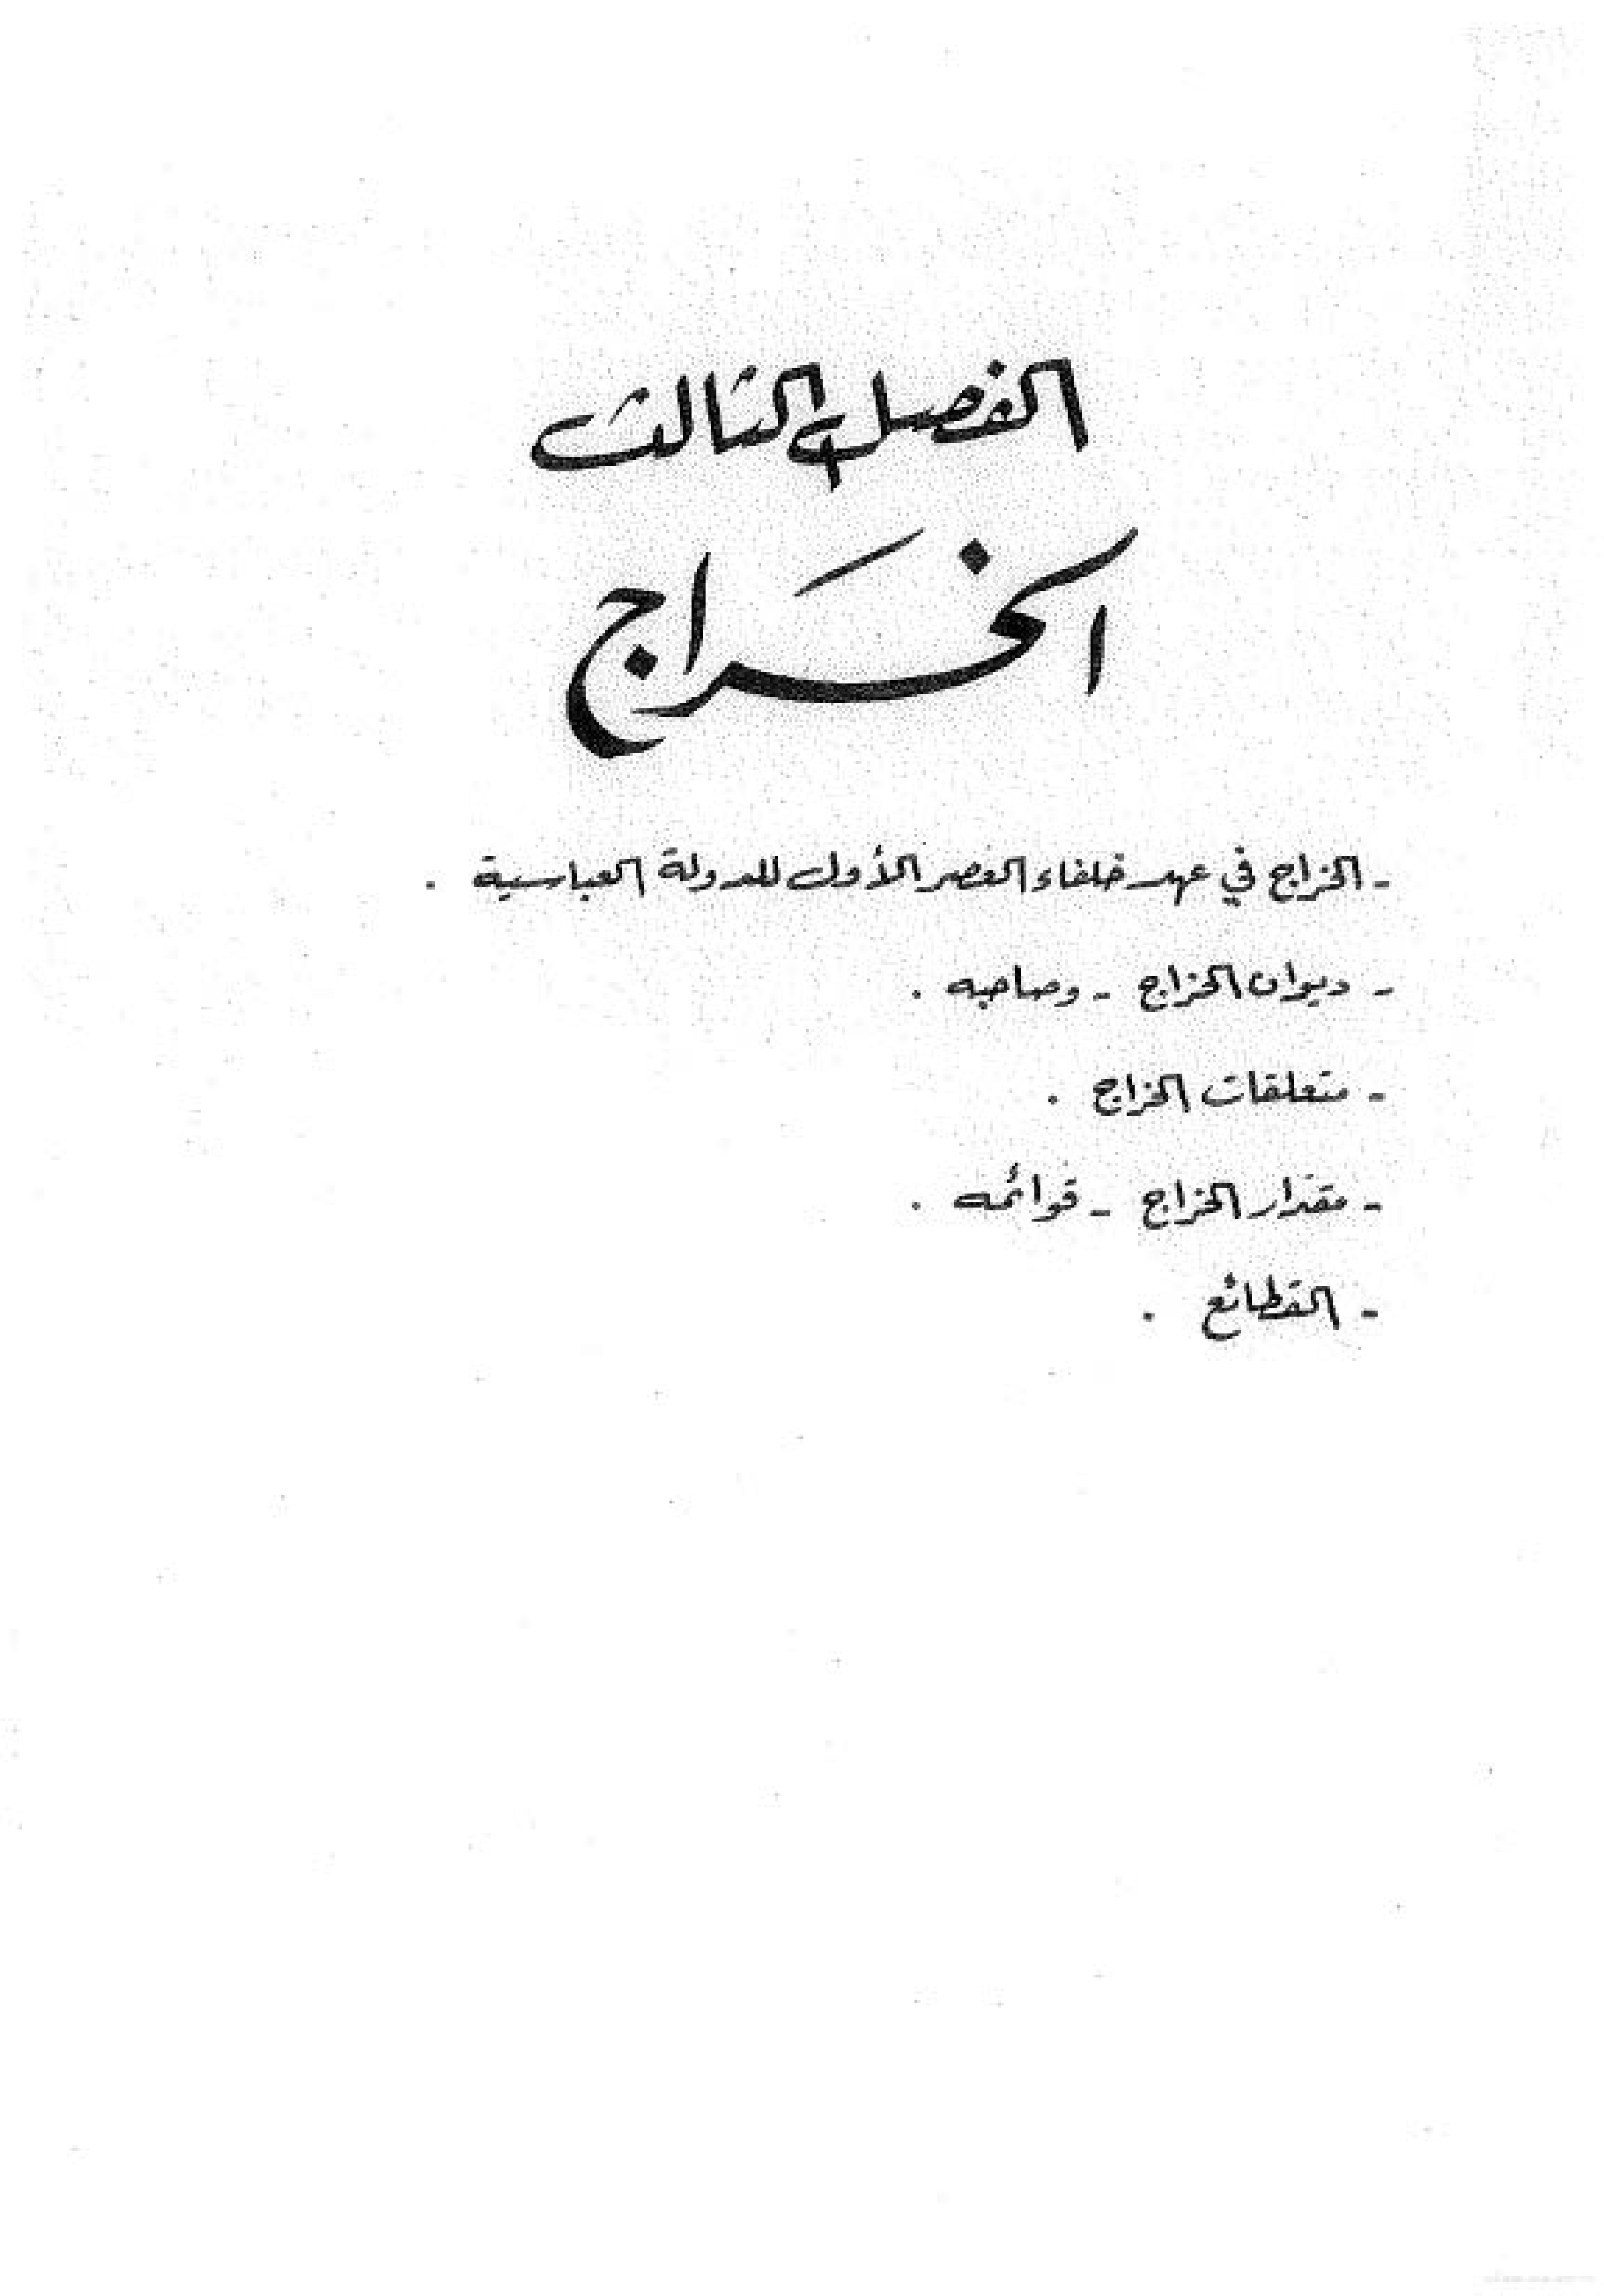 الفصل الثالث
الخَراج
- الخراج في عهد خلفاء العصر الأول للدولة العباسية .
- ديوان الخراج - وصاحبه .
- متعلقات الخراج .
- مقدار الخراج - قوائمه .
- القطائع .